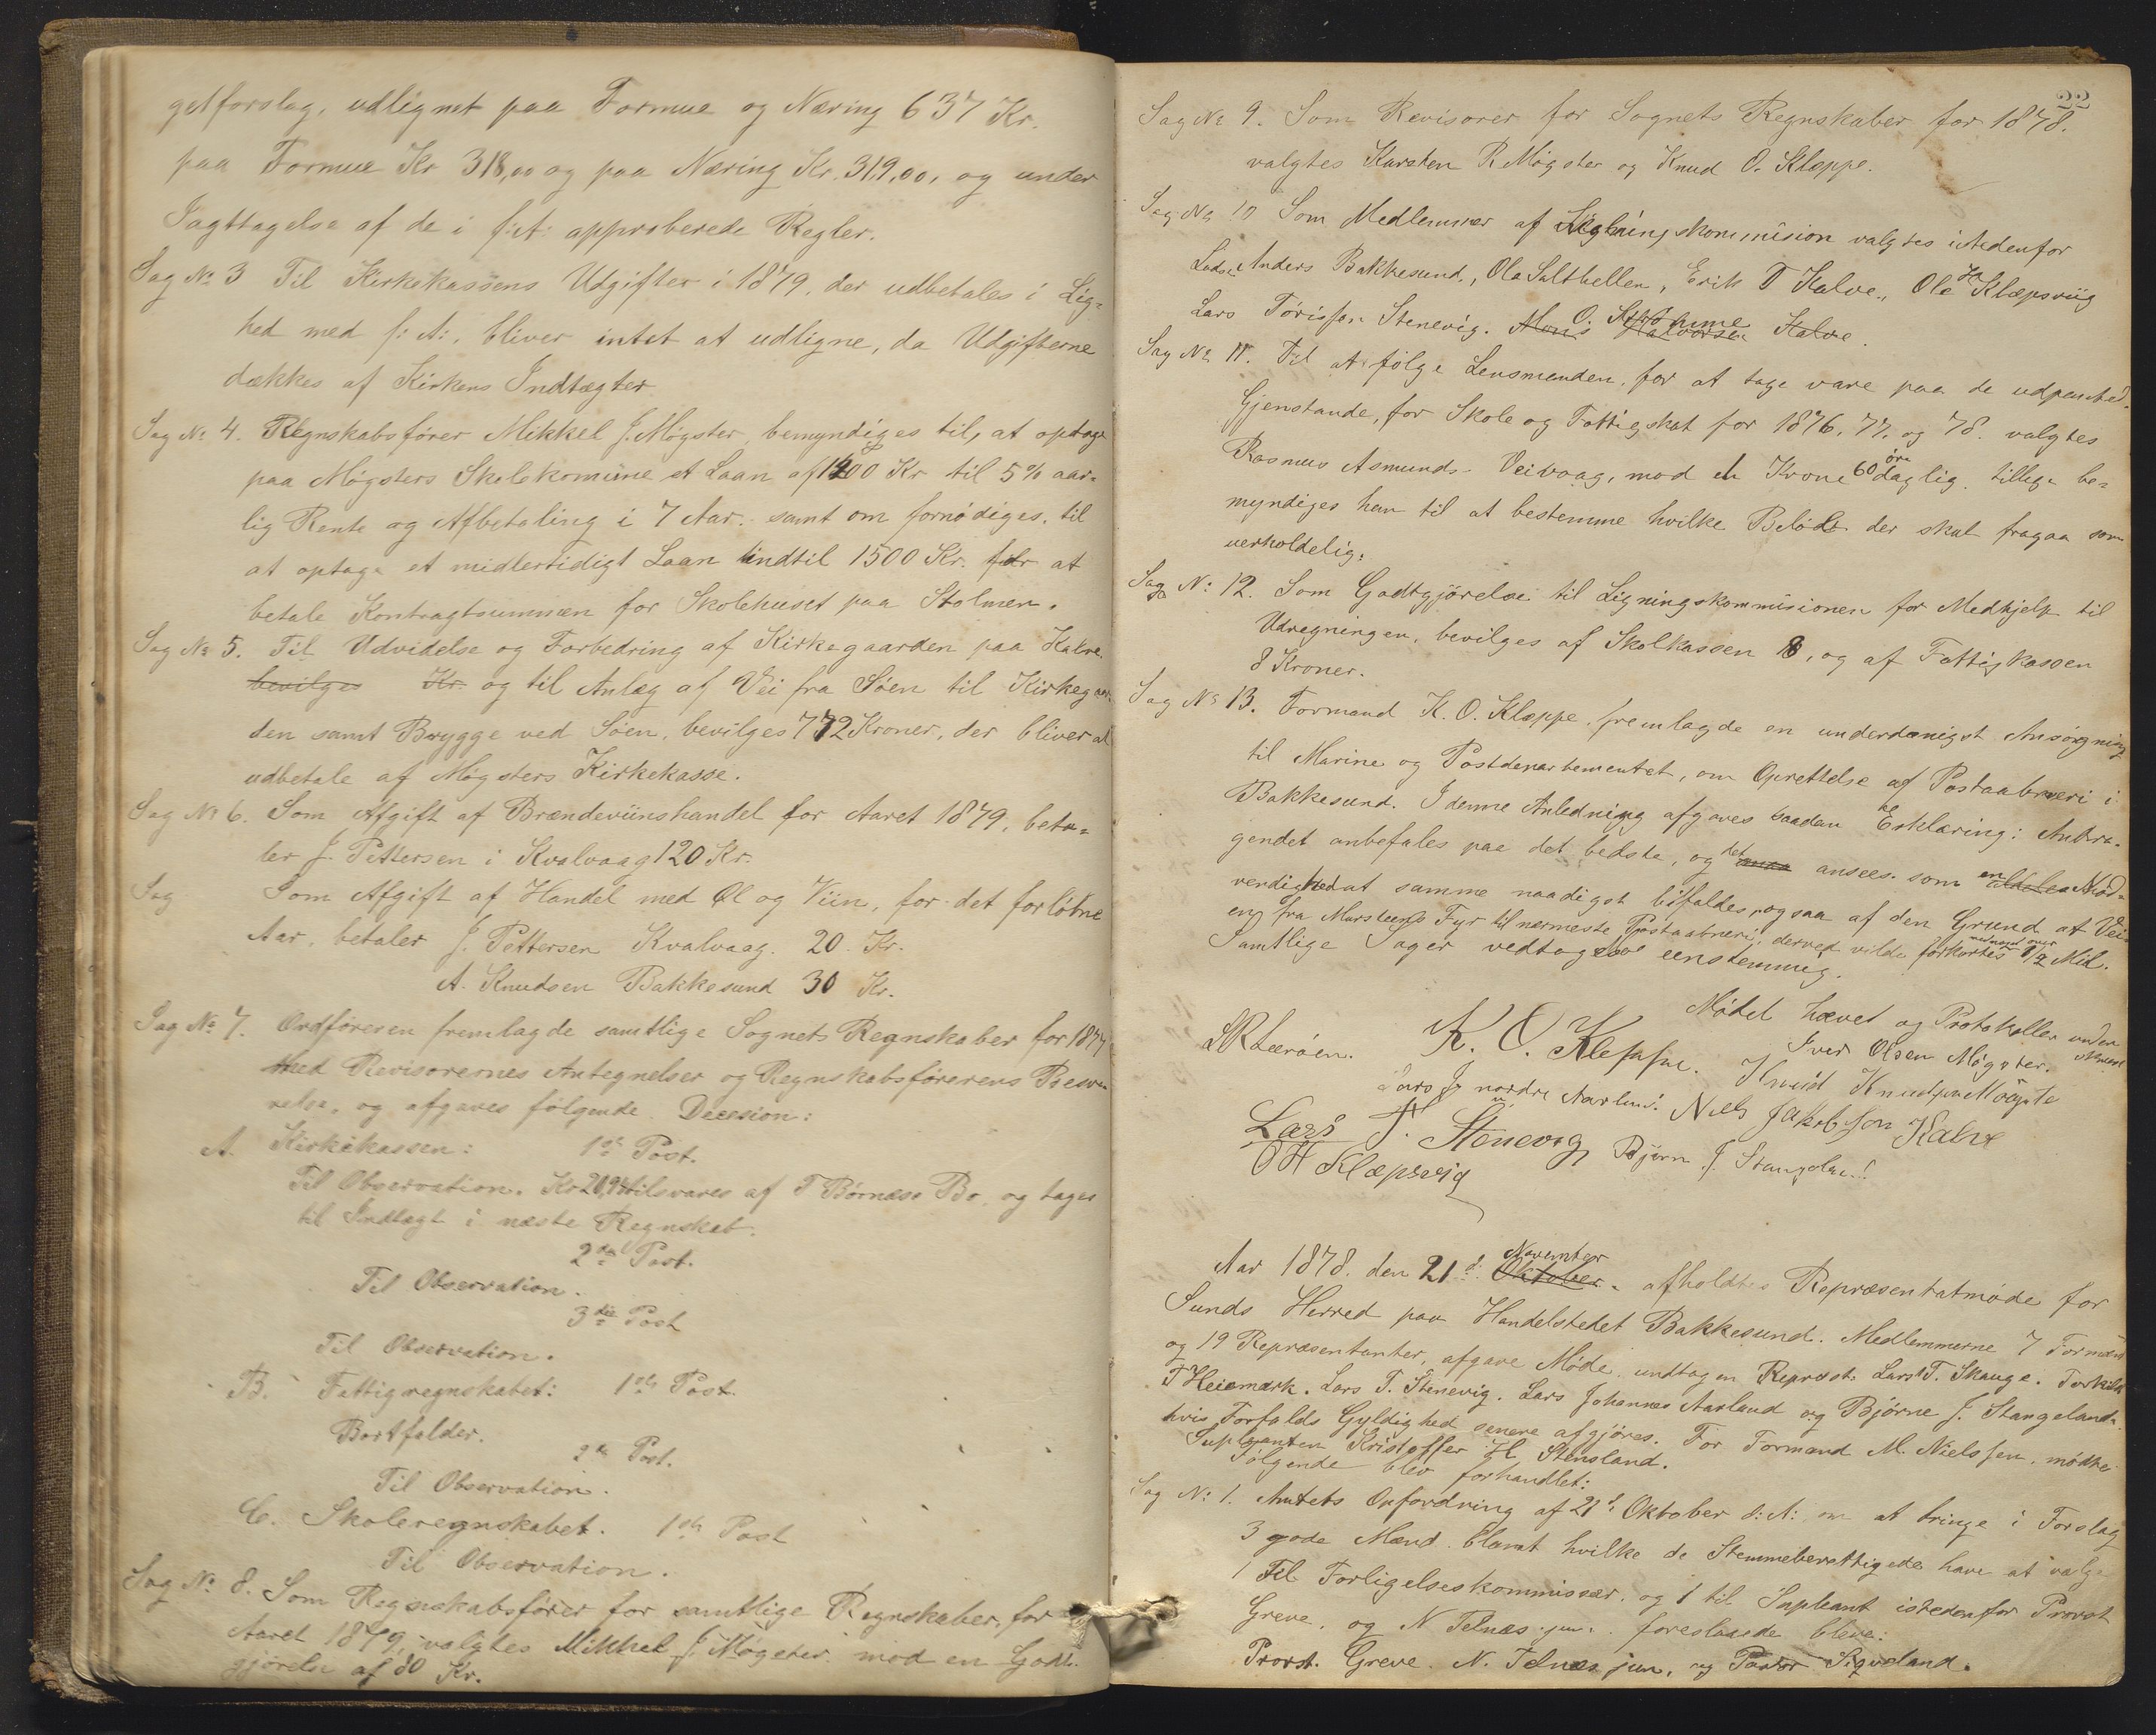 getforslag, udlignet paa Formue og Næring 637 Kr.
paa Formue Kr 318,00 og paa Næring Kr. 319,00, og under
Iagttagelse af de i f: A: approberede Regler.
Sag No 3 Til Kirkekassens Udgifter i 1879, der udbetales i Lig=
hed med f: A:, bliver intet at udligne, da Udgifterne
dækkes af Kirkens Indtægter
Sag No 4. Regnskabsfører Mikkel J. Møgster, bemyndiges til, at optage
paa Møgsters Skolekomune et Laan af Kr til 5% aar=
lig Rente og Afbetaling i 7 Aar. samt om fornødiges, til
at optage et midlertidigt Laan indtil 1500 Kr. for at
betale Kontragtsummen for Skolehuset paa Stolmen.
Sag No 5. Til Udvidelse og Forbedring af Kirkegaarden paa Kalve
bevilges Kr. og til Anlæg af Vei fra Söen til Kirkegaar=
den samt Brygge ved Söen, bevilges 772 Kroner, der bliver at
udbetale af Møgsters Kirkekasse.
Sag No 6. Som Afgift af Brændeviinshandel for Aaret 1879, beta=
ler J. Pettersen i Kvalvaag 120 Kr.
Sag Som Afgift af Handel med Øl og Viin, for det forløbne
Aar, betaler J. Pettersen Kvalvaag. 20 Kr.
A. Knudsen Bakkesund 30 Kr.
Sag No 7. Ordføreren fremlagde samtlige Sognets Regnskaber for 1877
med Revisorernes Antegnelser og Regnskabsførerens Besva-
relse, og afgaves følgende Decesion:
A. Kirkekassen: 1ste Post.
Til Observation. Kr tilsvares af T Børnæs Bo, og tages
til Indtægt i næste Regnskab.
2den Post.
Til Observation.
3die Post
Til Observation.
B. Fattigregnskabet: 1ste Post.
Bortfalder.
2den Post.
Til Observation.
C. Skoleregnskabet. 1ste Post
Til Observation.
Sag No 8. Som Regnskabsfører for samtlige Regnskaber, for
Aaret 1879, valgtes Mikkel J. Møgster mod en Godt-
gjørelse af 80 Kr.
22
Sag No 9. Som Revisorer for Sognets Regnskaber for 1878.
valgtes Karsten R. Møgster og Knud O. Kleppe.
Sag No 10 Som Medlemmer af Ligningskommision valgtes istedenfor
Anders Bakkesund, Ola Salthellen, Erik T Kalve, Ole H Klæpsviig
Lars Törisson Stenevig. Mons O. Halvorsen Kalve.
Sag No 11. Til at følge Lensmanden, for at tage vare paa de udpantede
Gjenstande, for Skole og Fattigskat for 1876, 77, og 78. valgtes
Rasmus Asmunds. Veivaag, mod en Krone 60 öre daglig, tillige be=
myndiges han til at bestemme hvilke Belöb der skal fragaa som
uerholdelig.
Sag No: 12. Som Godtgjörelse til Ligningskommisionen for Medhjelp til
Udregningen, bevilges af Skolkassen 8, og af Fattigkassen
8 Kroner.
Sag No 13. Formand K. O. Kleppe, fremlagde en underdanigst Ansøgning
til Marine og Postdepartementet, om Oprettelse af Postaabneri i
Bakkesund. I denne Anledning afgaves saadan Erklæring: Andra=
gendet anbefales paa det bedste, og det ansees som en Nød=
vendighed at samme naadigst bifaldes, ogsaa af den Grund at Vei=
en fra Marsteens Fyr til nærmeste Postaabneri, derved vilde forkortes 1/2 Mil.
Samtlige Sager vedtoges eenstemmig.
Mødet hævet og Protokollen
LRLeröen. K. O. Kleppe. Iver Olsen Møgster.
Lars J nordre Aarland. Knud Knudsen Møgste
Lars T. Stenevig Niels Jakobsen Kalve
OH Klæpsvig Björn J. Stangelan!
Aar 1878. den 21de Oktober November afholdtes Repræsentatmøde for
Sunds Herred paa Handelstedet Bakkesund. Medlemmerne 7 Formænd
og 19 Repræsentanter, afgave Møde undtagen Repræst. Lars T. Skauge. Torkild
T Heiemark. Lars T. Stenevig. Lars Johannes Aarland og Bjørne J. Stangeland.
hvis Forfalds Gyldighed senere afgjöres. For Formand M. Nielssen, mødte
Supleanten Kristoffer H. Stensland.
Følgende blev forhandlet:
Sag No: 1. Amtets Opfordring af 21de Oktober d: A: om at bringe i Forslag
3 gode Mænd blandt hvilke de Stemmeberettigede have at vælge
1 Til Forligelseskommissær, og 1 til Supleant istedenfor Provst
Greve, og N Telnæs jun.. foreslaaede bleve:
Provst. Greve. N. Telnæs jun, og Pastor Siqveland.